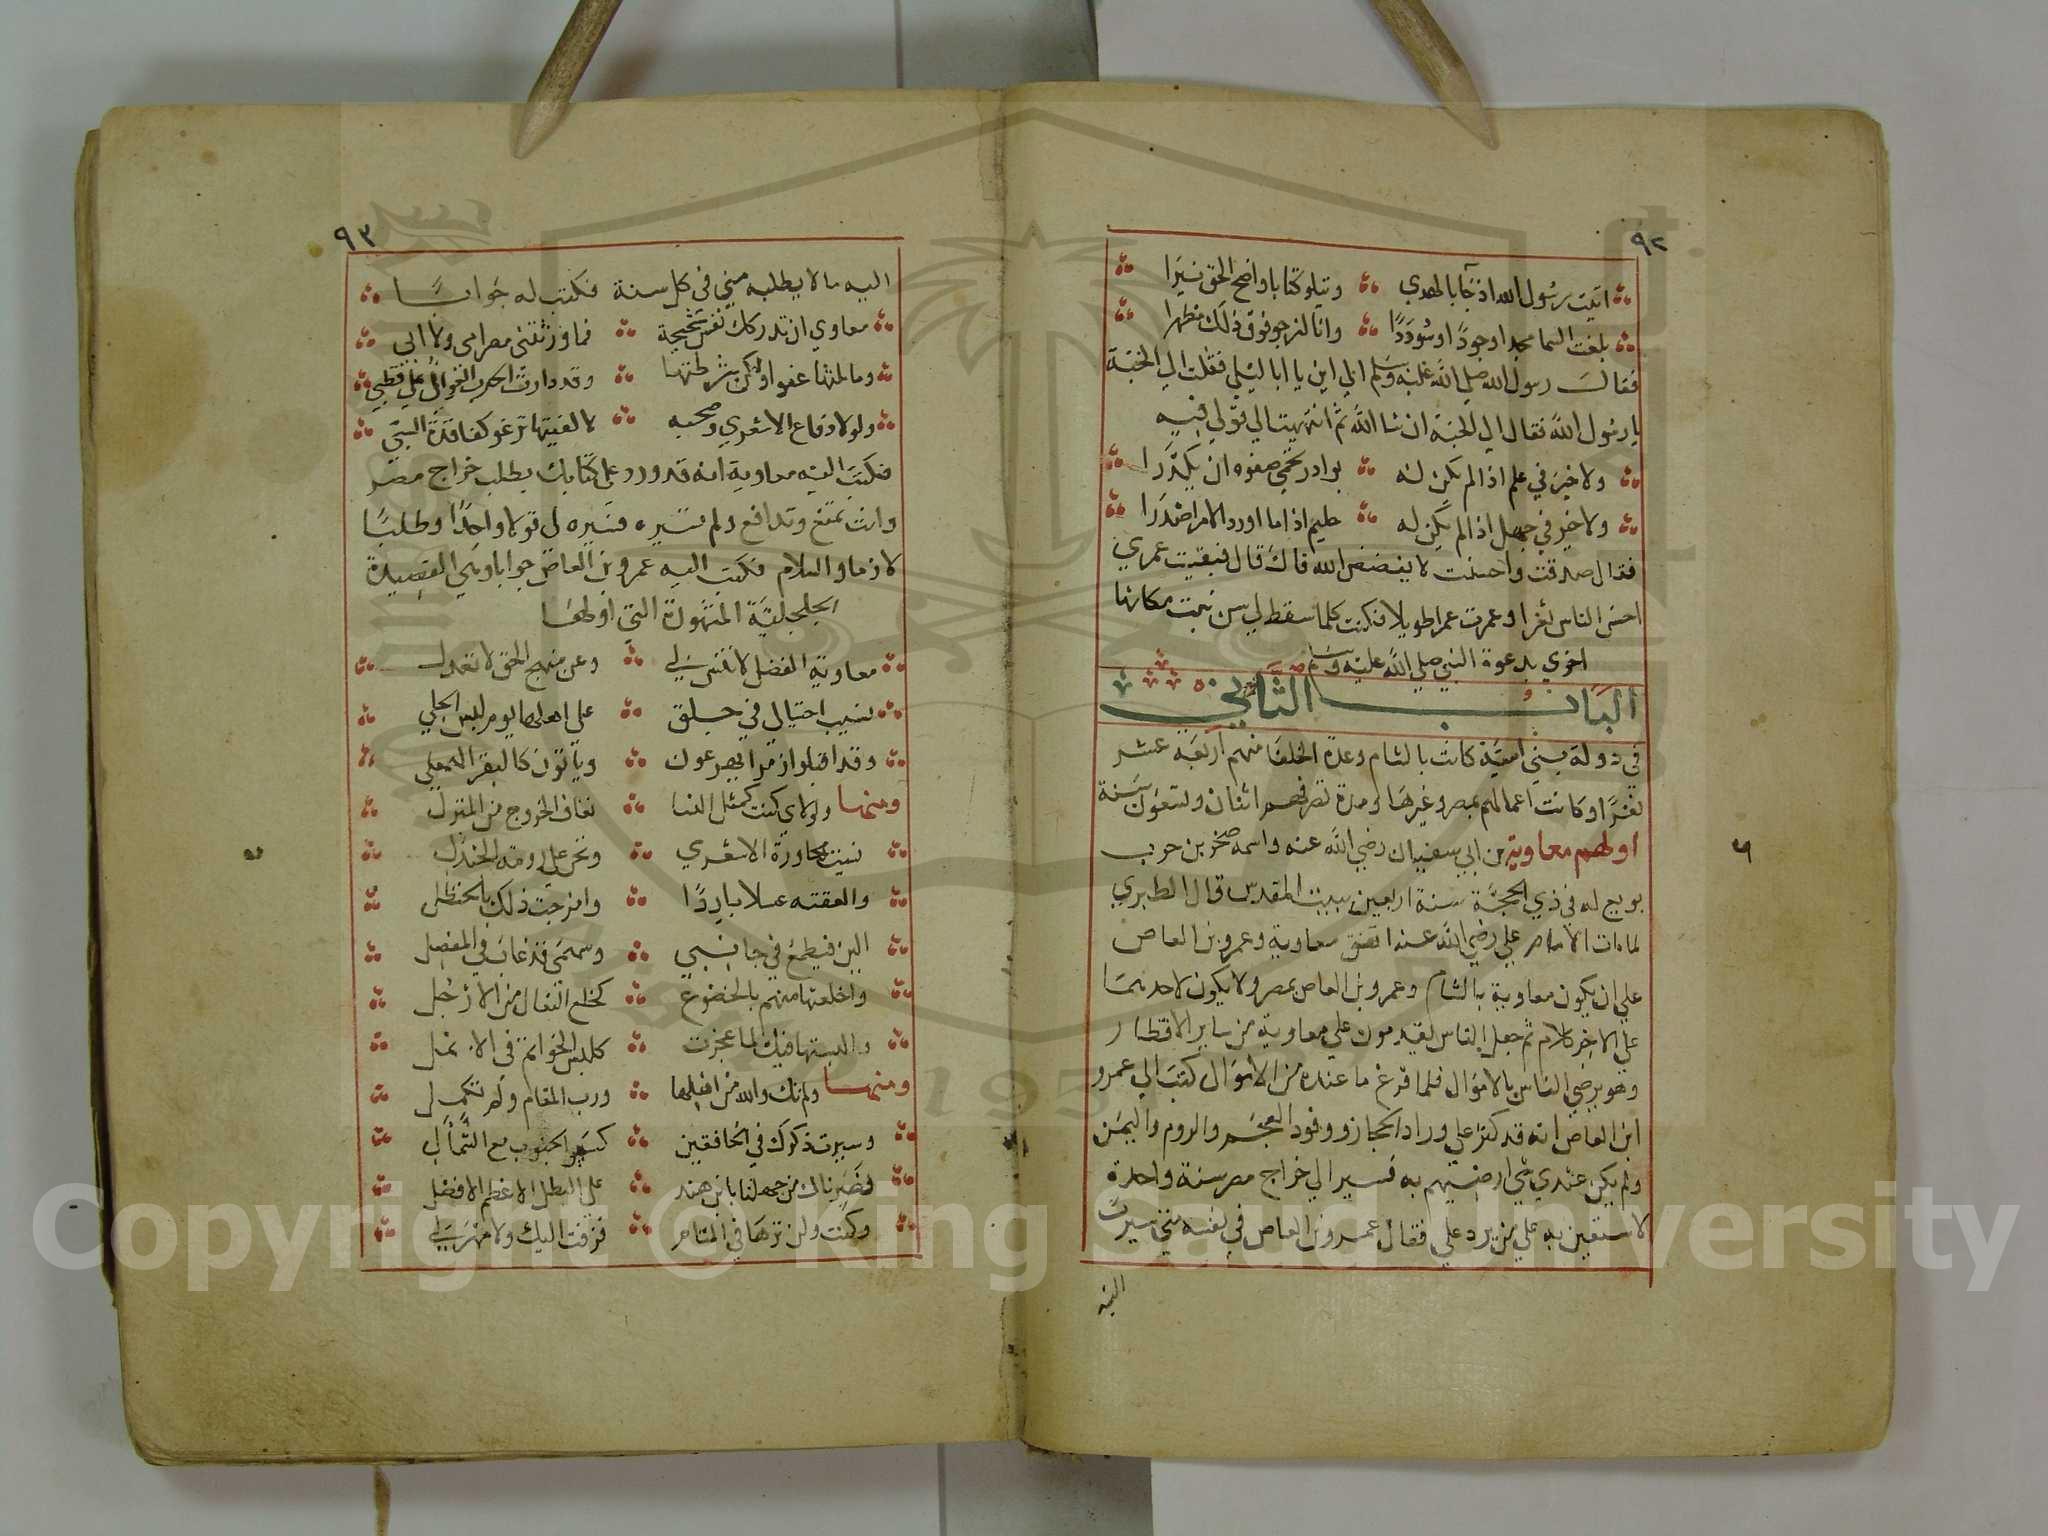 ٩٢
اتيت رسول الله اذ جآ بالهدي وتيلو كتابا واضح الحق نيرا
بلغت السما مجدا وجودًا وسؤددًا وانا لنرجو فوق ذلك مظهرا
فقال رسول الله صلي الله عليه وسلم الي اين يا ابا ليلي فقلت الي الجنة
يا رسول الله فقال الي الجنة ان شا الله ثم انتهيت الي قولي فيه
ولا خير في علم اذا لم يكن له بوادر تحمي صفوه ان يكدرا
ولا خير في جهل اذا لم يكن له حليم اذا ما اورد الامر اصدرا
فقال صدقت واحسنت لا يفضض الله فاك قال فبقيت عمري
احسن الناس ثغرا وعمرت عمرا طويلا فكنت كلما سقط لي سن نبت مكانها
اخري بدعوة النبي صلي الله عليه وسلم
الباب الثاني
في دولة بني امية كانت بالشام وعدة الخلفا منهم اربعة عشر
نفرا وكانت اعمالهم بمصر وغيرها ومدة تصرفهم اثنان وتسعون سنة
اولهم معاوية بن ابي سفيان رضي الله عنه واسمه صخر بن حرب
بويع له في ذي الحجة سنة اربعين ببيت المقدس قال الطبري
لما مات الامام علي رضي الله عنه اتفق معاوية وعمرو بن العاص
علي ان يكون معاوية بالشام وعمرو بن العاص بمصر ولا يكون لاحدهما
علي الاخر كلام ثم جعل الناس يقدمون علي معاوية من ساير الاقطار
وهو يرضي الناس بالاموال فلما فرغ ما عنده من الاموال كتب الي عمرو
ابن العاص انه قد كثر علي وراد الحجاز ووفود العجم والروم واليمن
ولم يكن عندي شي ارضيهم به فسير الي خراج مصر سنة واحدة
لاستعين به علي من يرد علي فقال عمرو بن العاص في نفسه متي سيرت
اليه
٩٣
اليه مالا يطلبه مني في كل سنة فكتب له جوابًا
معاوي ان تدركك نفس شحيحة فما ورثتني مصر امي ولا ابي
وما نلتها عفوا ولكن شرطتها وقد دارت الحرب العوان علي قطبي
ولولا دفاع الاشعري وصحبه لالفيتها ترغو كفاقدة السبي
فكتب اليه معاوية انه قد ورد علي كتابك يطلب خراج مصر
وانت تمتنع وتدافع ولم تسيره فسيره لي قولا واحدًا وطلبًا
لازما والسلام فكتب اليه عمرو بن العاص جوابا وهي القصيدة
الجلجلية المشهورة التي اولها
معاوية الفضل لا تنسي لي وعن منهج الحق لا تعدل
نسيت احتيالي في جلق علي اهلها يوم لبس الحلي
وقد اقبلوا زمرا يهرعون وياتون كالبقر المهمل
ومنها ولولاي كنت كمثل النسا تعاف الخروج من المنزل
نسيت محاورة الاشعري ونحن علي دومة الجندل
والعقته عسلا باردًا وامزجت ذلك بالحنظل
الين فيطمع في جانبي وسهمي قد غاب في المفصل
واخلعتها منهم بالخضوع كخلع النعال من الارجل
والبستها فيك لما عجزت كلبس الخواتم في الانمل
ومنها ولم تك والله من اهلها ورب المقام ولم تكمل
وسيرت ذكرك في الخافقين كسير الجنوب مع الشمال
نصرناك من جهلنا يا ابن هند علي البطل الاعظم الافضل
وكنت ولن ترها في المنام فزفت اليك ولا مهر لي
Copyright © King Saud University
1957